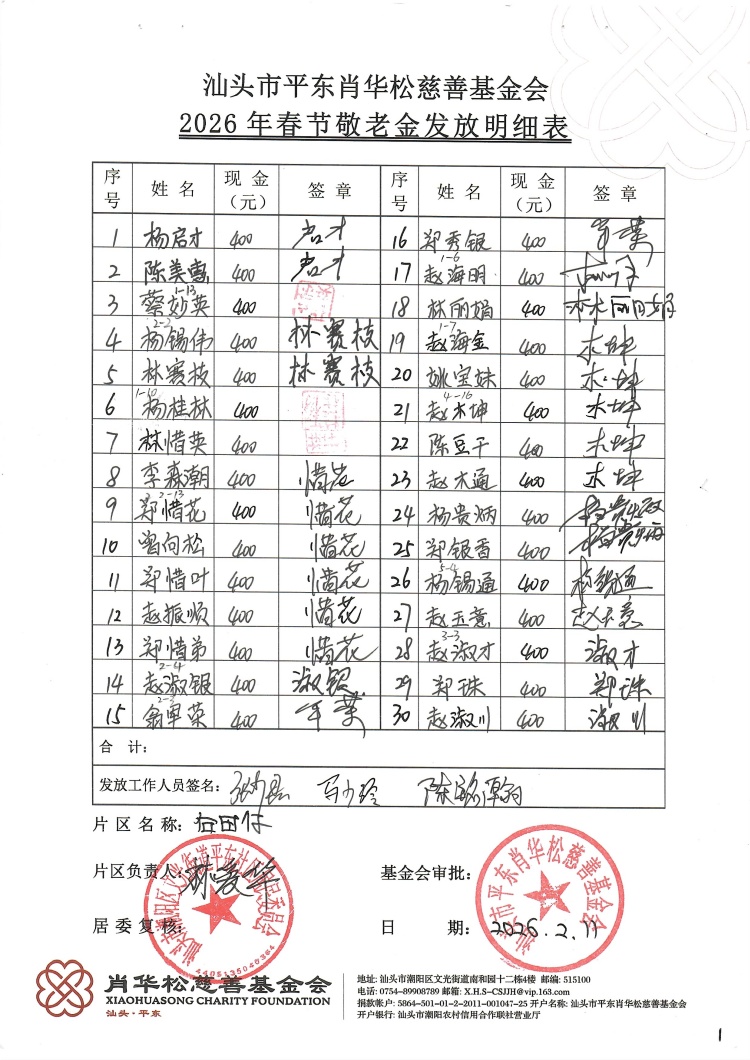 汕头市平东肖华松慈善基金会
2026年春节敬老金发放明细表
序号 姓名 现金（元） 签章 序号 姓名 现金（元） 签章
1 杨启才 400 启才 16 郑秀银 400
2 陈美惠 400 启才 17 1-6 赵海明 400
3 1-13 蔡妙英 400 18 林丽娟 400 林丽娟
4 2-2 杨锡伟 400 林赛枝 19 1-7 赵海金 400 木坤
5 林赛枝 400 林赛枝 20 姚宝妹 400 木坤
6 1-10 杨桂林 400 21 4-16 赵木坤 400 木坤
7 林惜英 400 22 陈豆干 400 木坤
8 李森潮 400 惜花 23 赵木通 400 木坤
9 2-13 郑惜花 400 惜花 24 杨贵炳 400 杨贵炳
10 曾向松 400 惜花 25 郑银香 400 杨贵炳
11 郑惜叶 400 惜花 26 5-4 杨锡通 400 杨锡通
12 赵振顺 400 惜花 27 赵玉意 400 赵玉意
13 郑惜弟 400 惜花 28 3-3 赵淑才 400 淑才
14 2-4 赵淑银 400 淑银 29 郑珠 400 郑珠
15 翁单菜 400 单菜 30 赵淑川 400 淑川
合 计：
发放工作人员签名： 马少玲
片区名称：
片区负责人： 基金会审批：
居委复核： 日 期： 2026.2.11
汕头市潮阳区文光街道平东社区居民委员会
4405135040364
汕头市平东肖华松慈善基金会
肖华松慈善基金会
XIAOHUASONG CHARITY FOUNDATION
汕头·平东
地址: 汕头市潮阳区文光街道南和园十二栋4楼 邮编: 515100
电话: 0754-89908789 邮箱: X.H.S-CSJJH@vip.163.com
捐款帐户: 5864-501-01-2-2011-001047-25 开户名称: 汕头市平东肖华松慈善基金会
开户银行: 汕头市潮阳农村信用合作联社营业厅
1